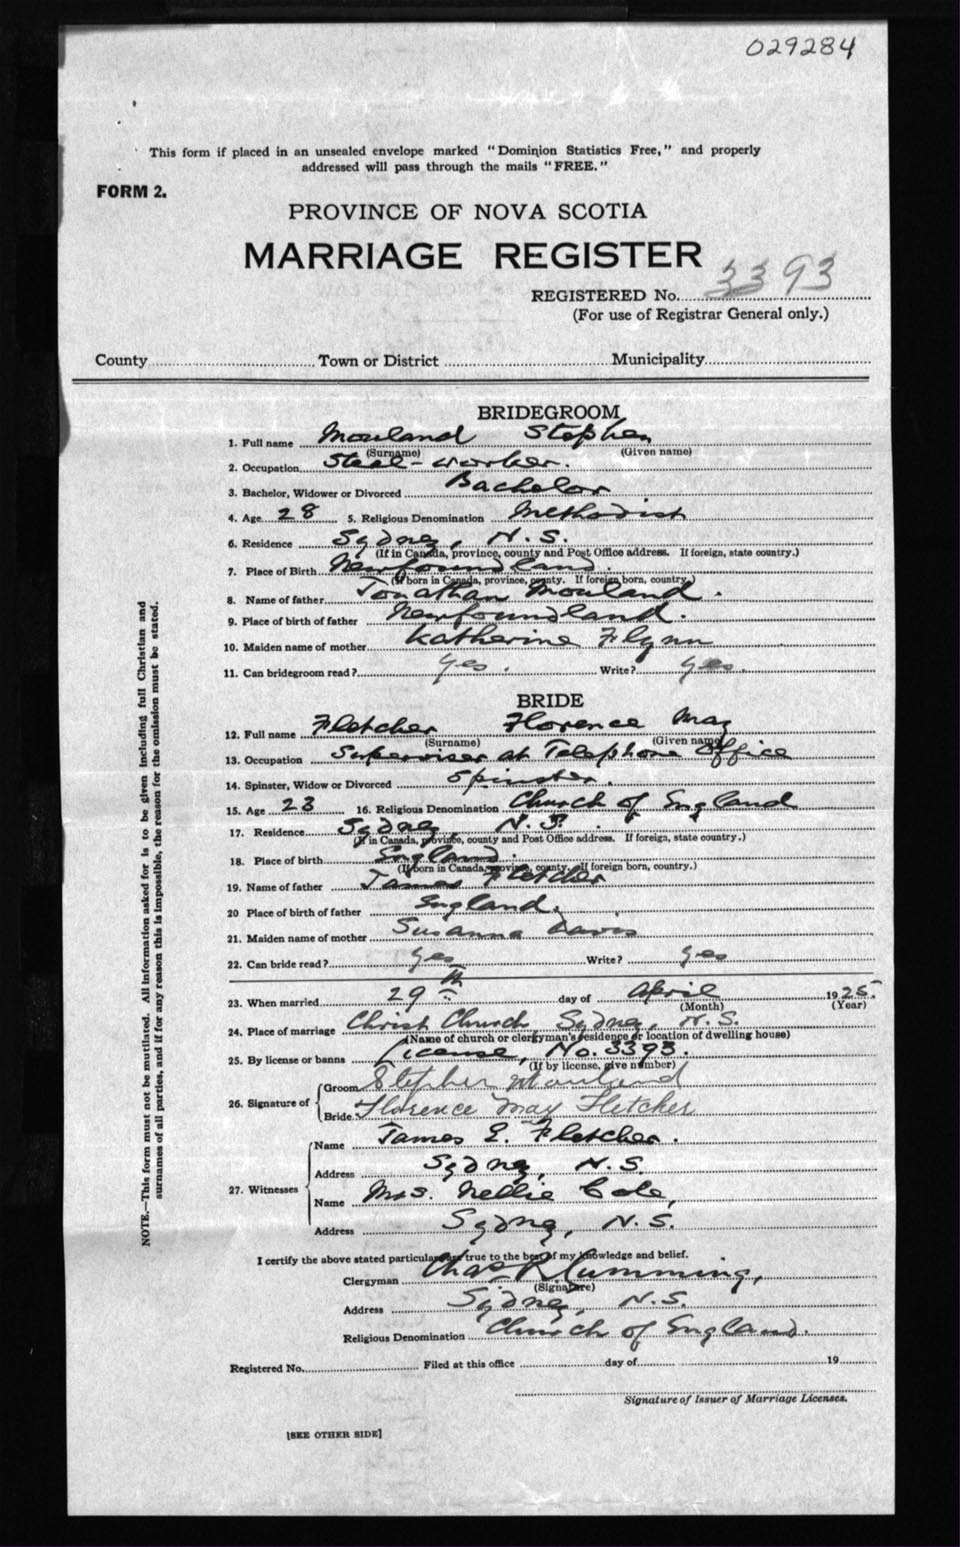 029284
This form if placed in an unsealed envelope marked "Dominion Statistics Free," and properly
addressed will pass through the mails "FREE."
FORM 2.
PROVINCE OF NOVA SCOTIA
MARRIAGE REGISTER
REGISTERED No. 3393
(For use of Registrar General only.)
County Town or District Municipality
BRIDEGROOM
1. Full name Mouland Stephen
(Surname) (Given name)
2. Occupation Steel-worker.
3. Bachelor, Widower or Divorced Bachelor
4. Age 28 5. Religious Denomination Methodist
6. Residence Sydney, N.S.
(If in Canada, province, county and Post Office address. If foreign, state country.)
7. Place of Birth Newfoundland.
(If born in Canada, province, county. If foreign born, country.)
8. Name of father Jonathan Mouland.
9. Place of birth of father Newfoundland.
10. Maiden name of mother Katherine Flynn
11. Can bridegroom read? Yes. Write? Yes.
BRIDE
12. Full name Fletcher Florence May
(Surname) (Given name)
13. Occupation Superviser at Telephone Office
14. Spinster, Widow or Divorced Spinster.
15. Age 23 16. Religious Denomination Church of England
17. Residence Sydney, N.S.
(If in Canada, province, county and Post Office address. If foreign, state country.)
18. Place of birth England.
(If born in Canada, province, county. If foreign born, country.)
19. Name of father James Fletcher
20 Place of birth of father England.
21. Maiden name of mother Susanna Davis
22. Can bride read? Yes Write? Yes
23. When married 29th day of April 1925.
(Month) (Year)
24. Place of marriage Christ Church Sydney, N.S.
(Name of church or clergyman's residence or location of dwelling house)
25. By license or banns License, No. 3393.
(If by license, give number)
26. Signature of
Groom Stephen Mouland
Bride Florence May Fletcher
27. Witnesses
Name James E. Fletcher.
Address Sydney, N.S.
Name Mrs. Nellie Cole,
Address Sydney, N.S.
I certify the above stated particulars are true to the best of my knowledge and belief.
Clergyman Chas R Cumming,
(Signature)
Address Sydney, N.S.
Religious Denomination Church of England.
Registered No. Filed at this office day of 19
Signature of Issuer of Marriage Licenses.
[SEE OTHER SIDE]
NOTE.—This form must not be mutilated. All information asked for is to be given including full Christian and
surnames of all parties, and if for any reason this is impossible, the reason for the omission must be stated.